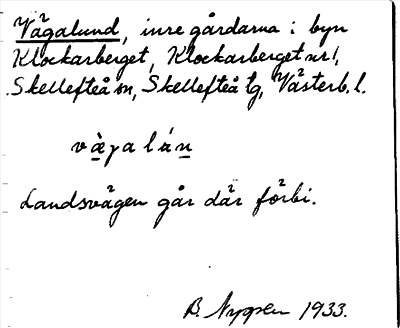 Vägalund, inre gårdarna i byn
Klockarberget, Klockarberget nr 1,
Skellefteå sn, Skellefteå tg, Västerb. l.
vä̀ga lán
Landsvägen går där förbi.
B. Nygren 1933.